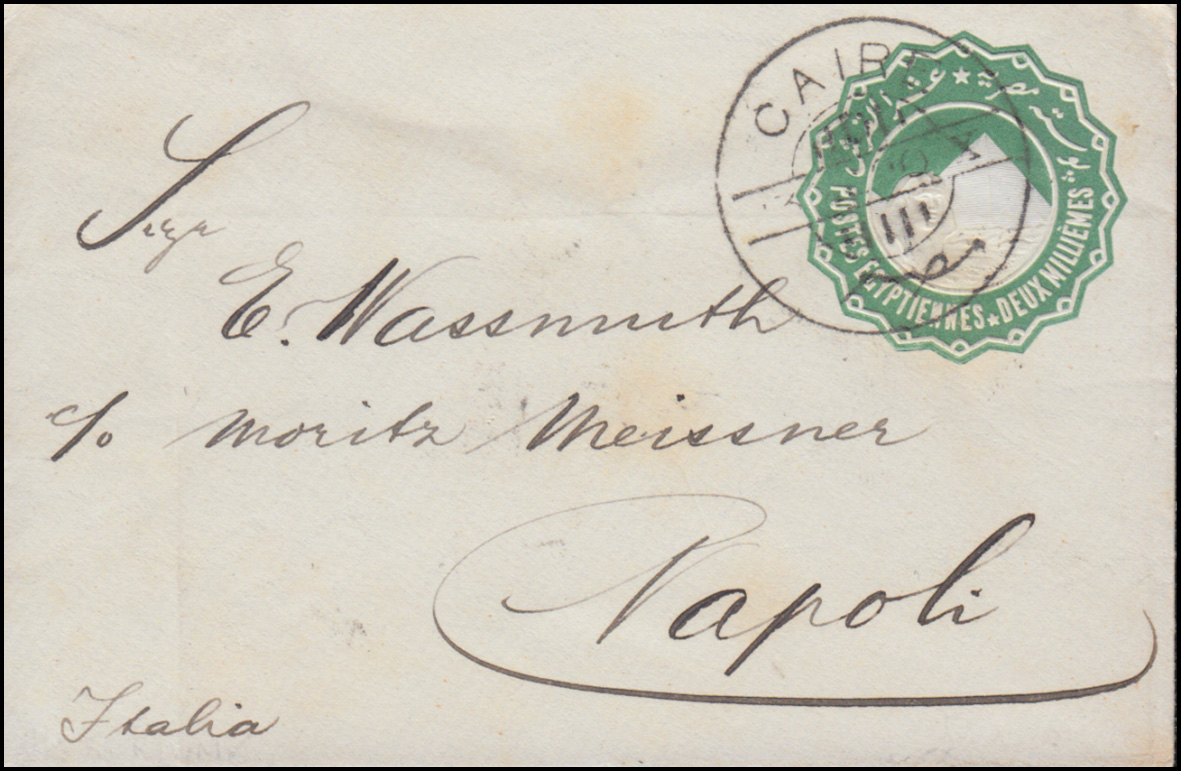 CAIRO
POSTES EGYPTIENNES ★ DEUX MILLIÈMES
E. Wassmuth
c/o Moritz Meissner
Napoli
Italia